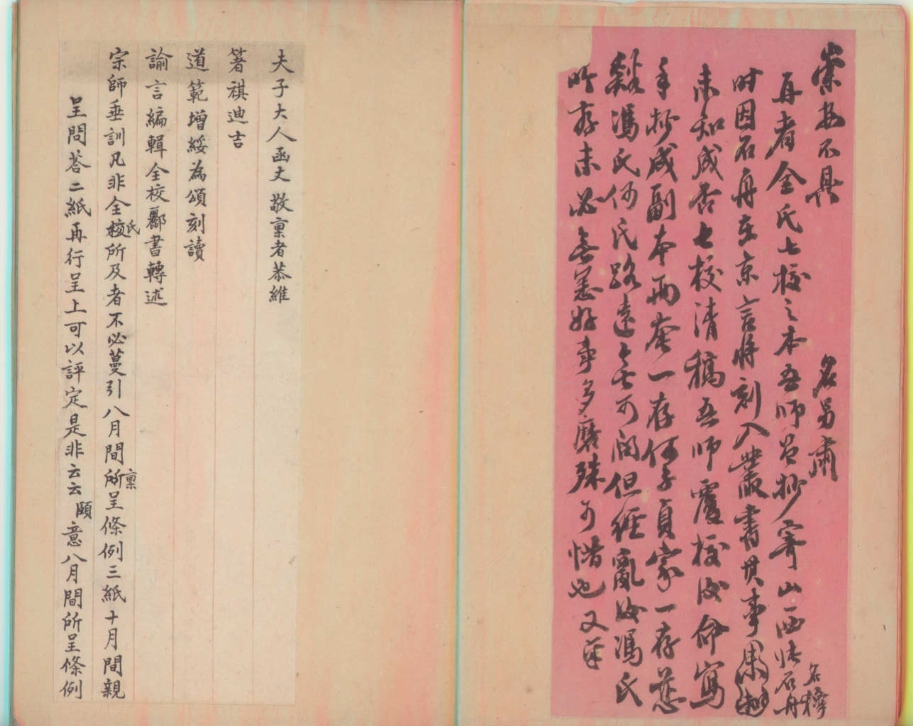 崇安不具
名另肅
再者全氏七校之本吾師曾抄寄山西張石舟名穆
時因石舟在京言將刻入叢書其事果
未知成否七校清稿吾師覆校後命寫
手抄成副本兩套一存何子貞家一存慈
谿馮氏何氏路遠無可問但經亂後馮氏
所存未必無恙好事多磨殊可惜也又稟
夫子大人函丈敬稟者恭維
箸祺迪吉
道範增綏為頌刻讀
諭言編輯全校酈書轉述
宗師垂訓凡非全氏校所及者不必蔓引八月間所稟呈條例三紙十月間親
呈問荅二紙再行呈上可以評定是非云云願意八月間所呈條例